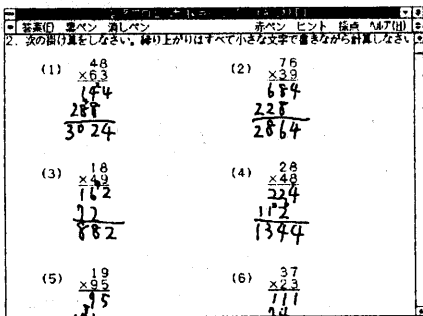 答案(E) 黒ペン 消しペン 赤ペン ヒント 採点 ヘルプ(H)
2. 次の掛け算をしなさい。繰り上がりはすべて小さな文字で書きながら計算しなさい
(1) 48
×63
144
288
3024
(2) 76
×39
684
228
2864
(3) 18
×49
162
72
882
(4) 28
×48
224
112
1344
(5) 19
×95
95
(6) 37
×23
111